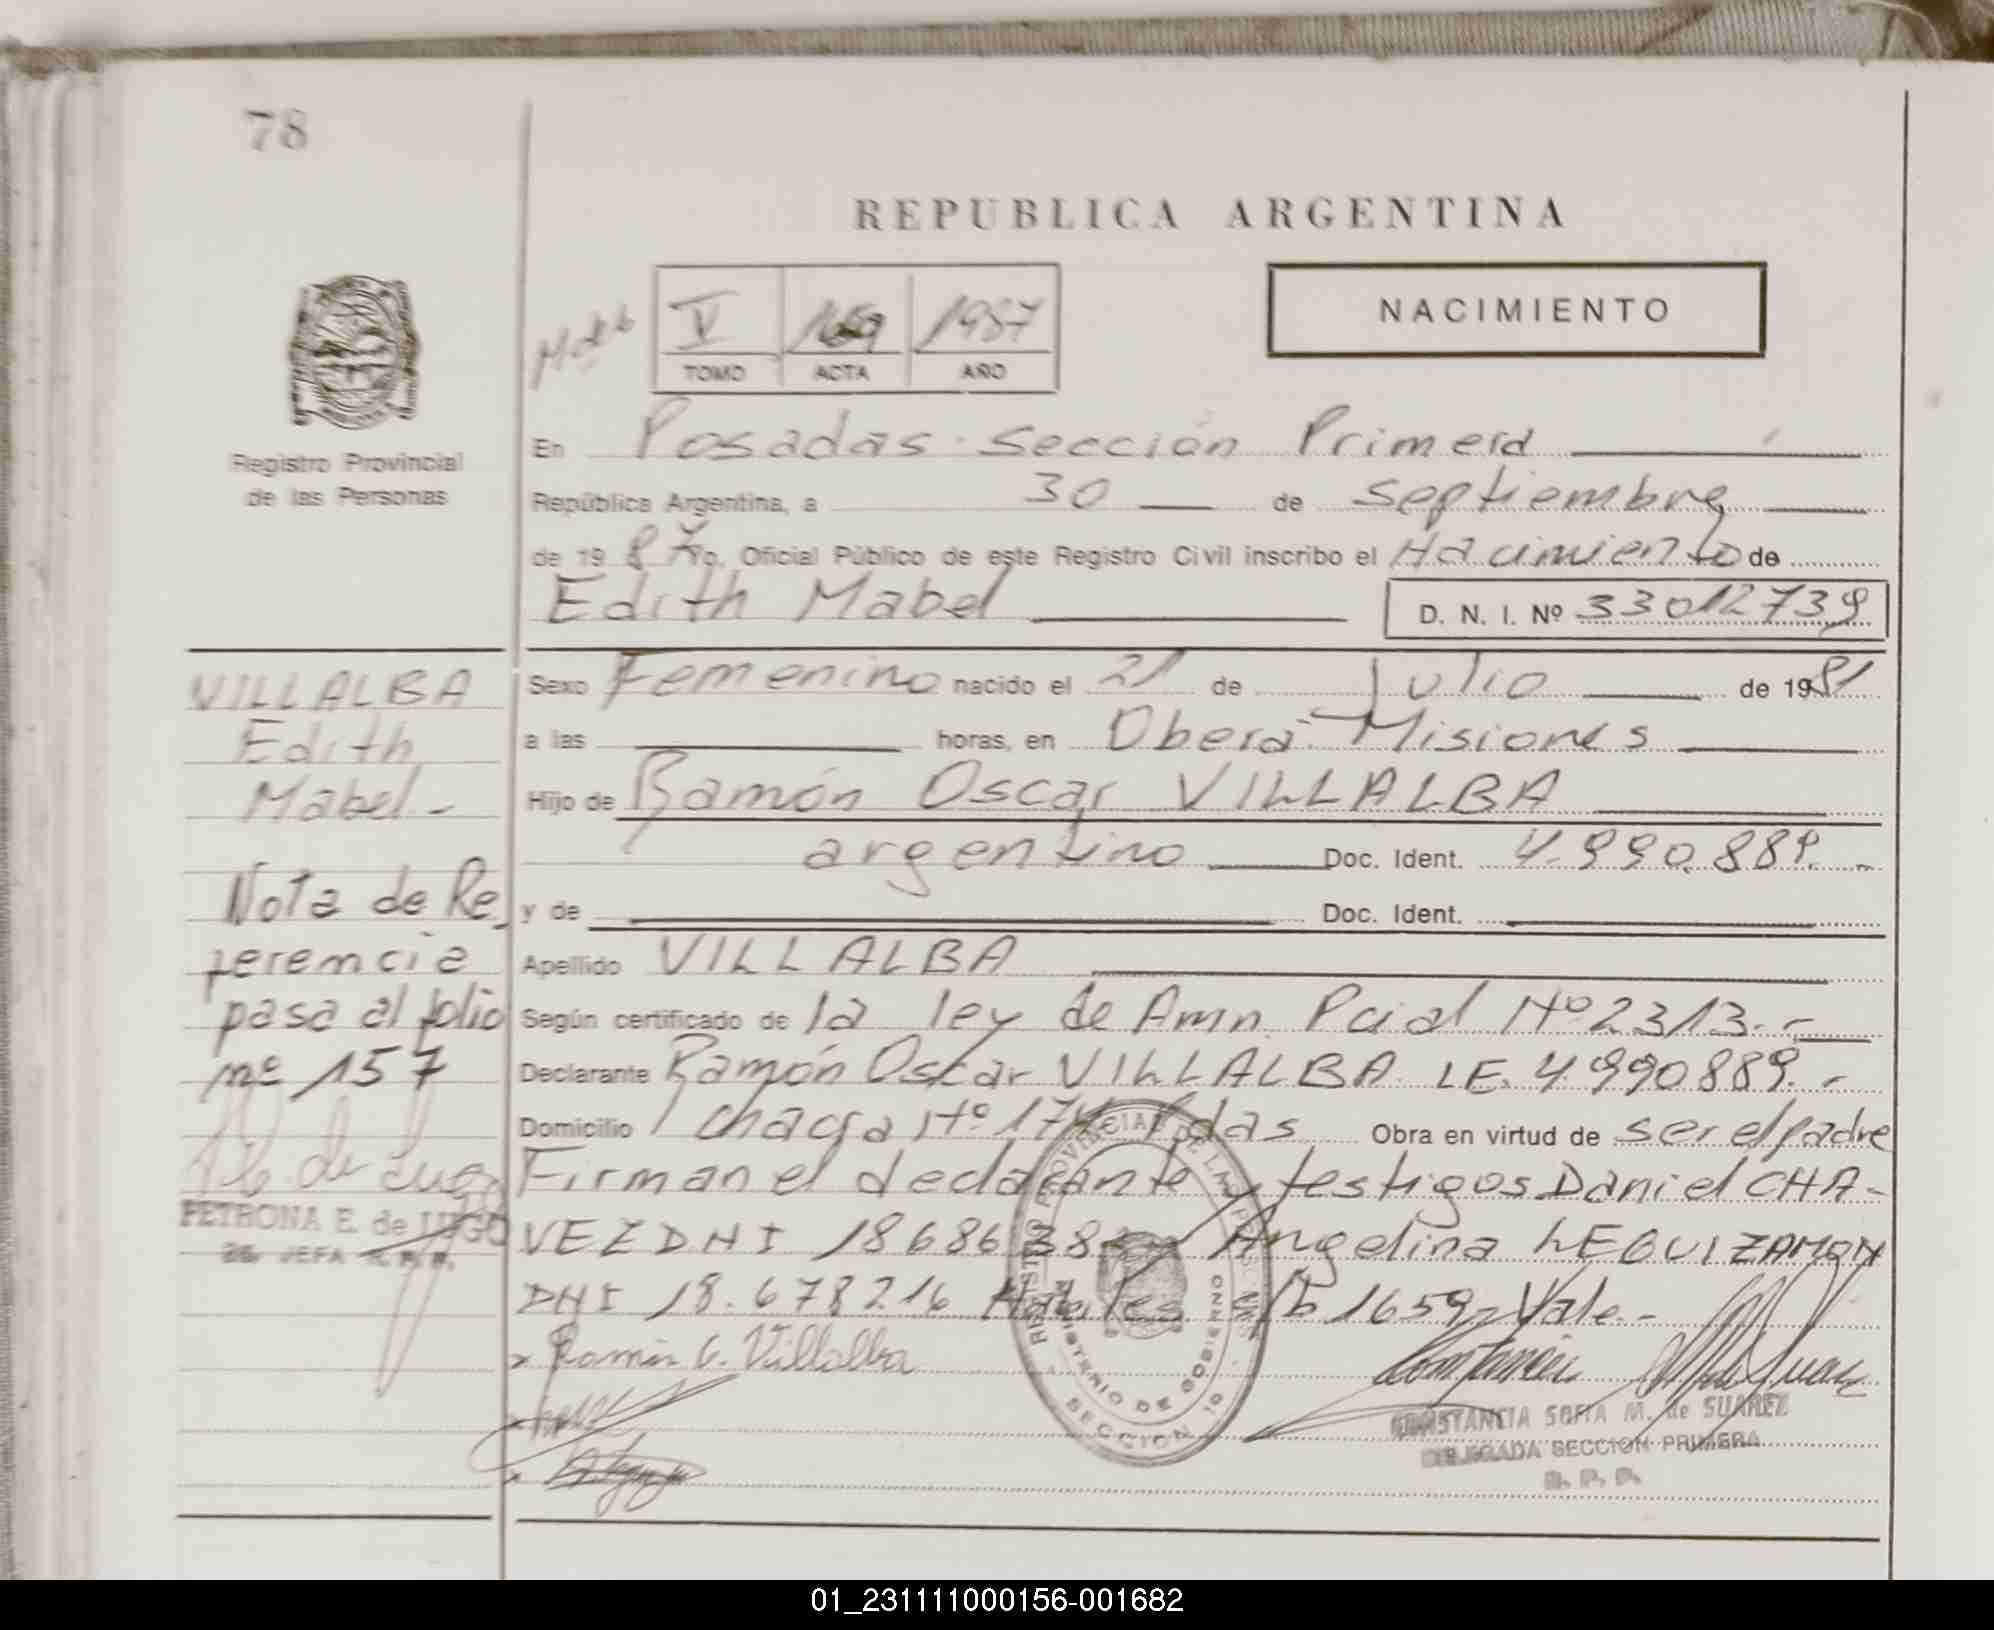 78
REPUBLICA ARGENTINA
NACIMIENTO
V 1659 1987
TOMO ACTA AÑO
Registro Provincial
de las Personas
En Posadas - Sección Primera
República Argentina, a 30 de septiembre
de 1987 Yo, Oficial Público de este Registro Civil inscribo el Nacimiento de
Edith Mabel D. N. I. Nº 33012739
VILLALBA
Edith
Mabel.-
Nota de Re-
ferencia
pasa al folio
nº 157
PETRONA E. de LUGO
JEFA R. P. P.
Sexo Femenino nacido el 21 de Julio de 1981
a las horas, en Oberá - Misiones
Hijo de Ramón Oscar VILLALBA
argentino Doc. Ident. 4.990.889.-
y de Doc. Ident.
Apellido VILLALBA
Según certificado de la ley de Amn. Pcial Nº 2313.-
Declarante Ramón Oscar VILLALBA LE. 4.990889.-
Domicilio chacra Nº 174 Pdas Obra en virtud de ser el padre
Firman el declarante y testigos Daniel CHA-
VEZ DNI 18686 38 y Angelina LEGUIZAMON
DNI 18.678216 Hábiles 1659 Vale.-
Ramón O. Villalba
REGISTRO PROVINCIAL DE LAS PERSONAS
MINISTERIO DE GOBIERNO
SECCION 1º
CONSTANCIA SOFIA M. de SUAREZ
DELEGADA SECCION PRIMERA
R. P. P.
01_231111000156-001682